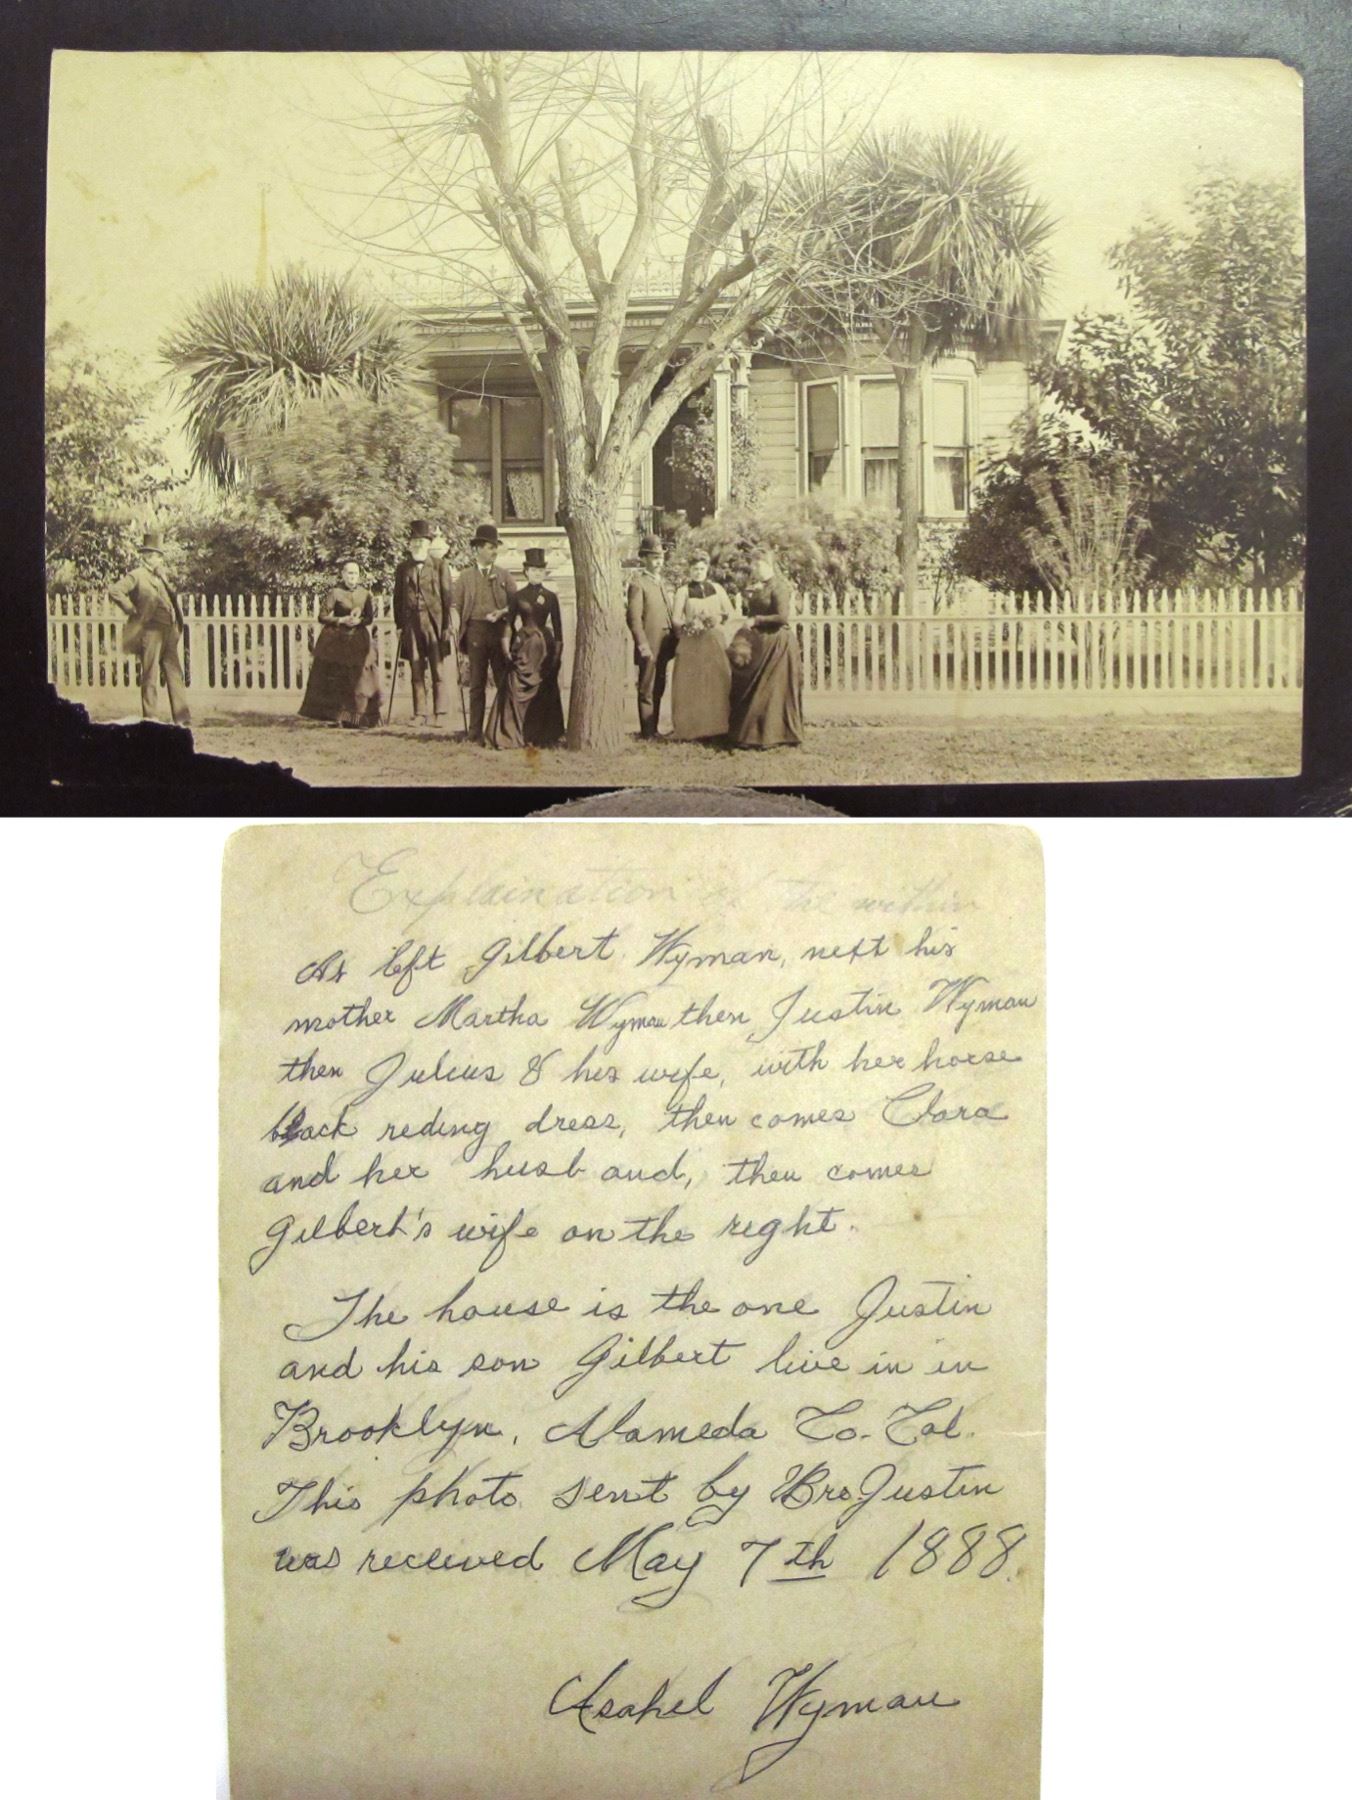 Explaination of the within
At left Gilbert Wyman, next his
mother Martha Wyman then Justin Wyman
then Julius & his wife, with her horse
back reding dress, then comes Clara
and her husband, then comes
Gilbert's wife on the right.
The house is the one Justin
and his son Gilbert live in in
Brooklyn, Alameda Co. Cal.
This photo sent by Bro Justin
was received May 7th 1888.
Asahel Wyman